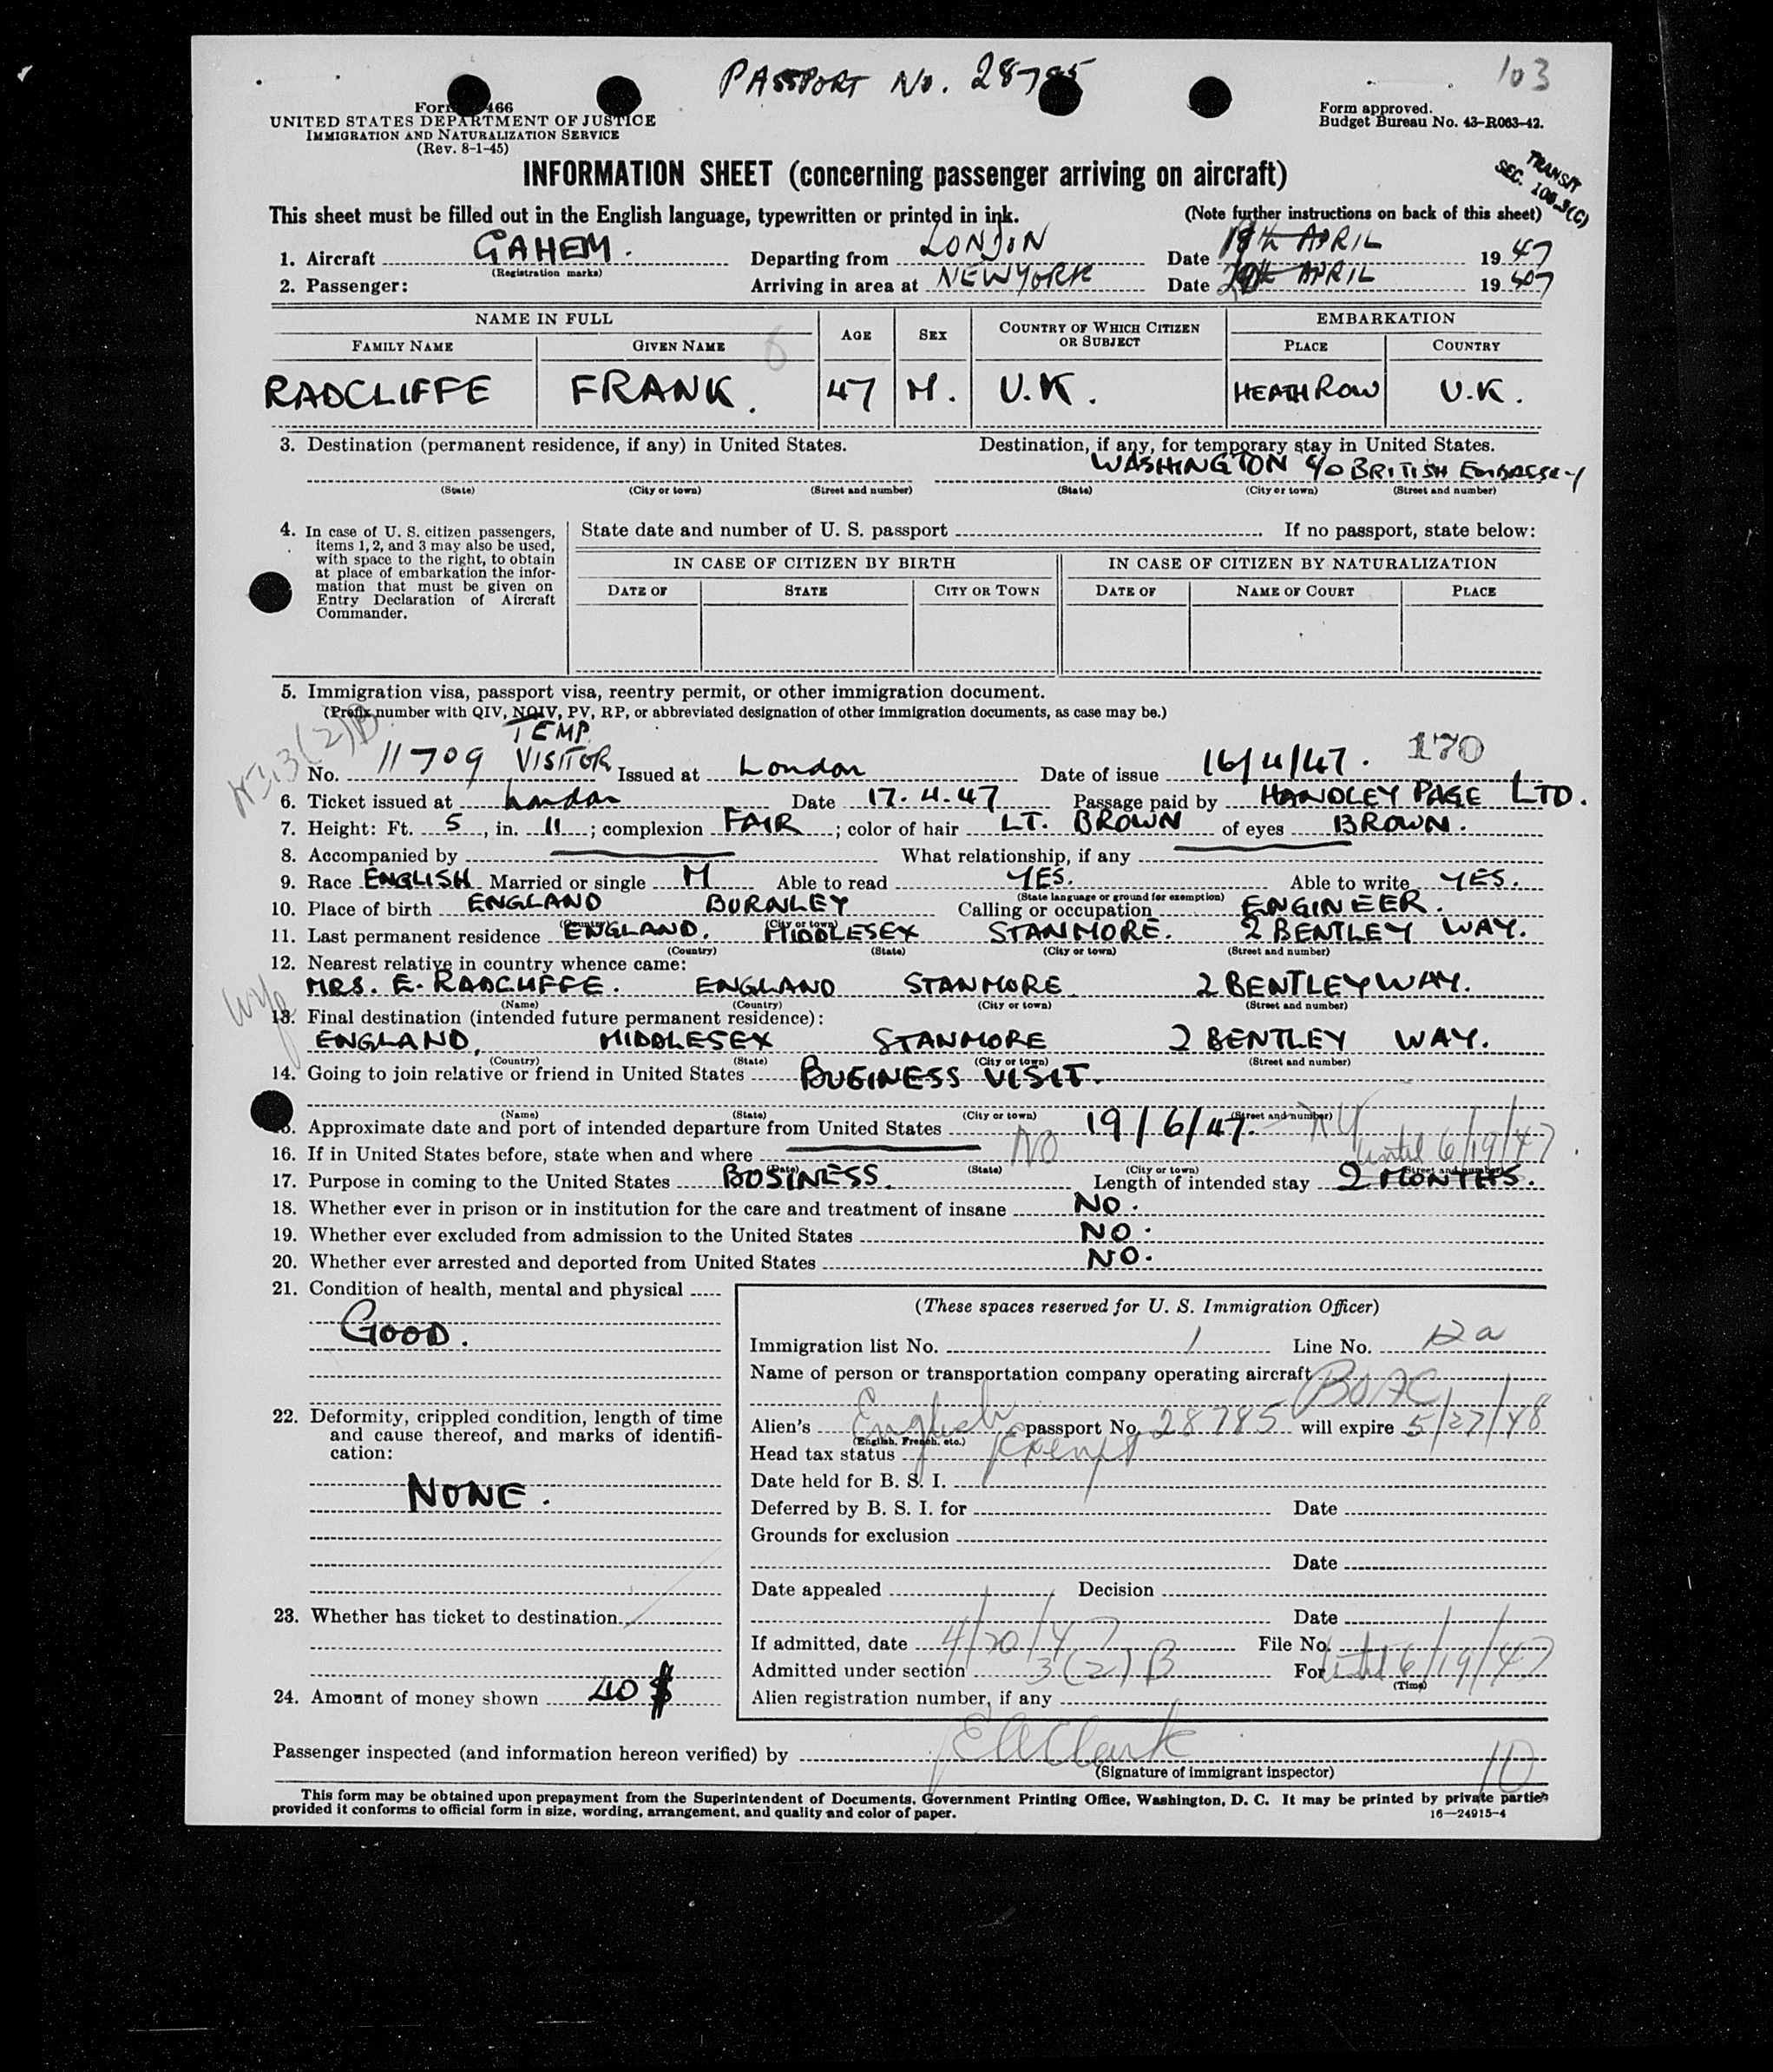 PASSPORT No. 28785
103
Form 466
UNITED STATES DEPARTMENT OF JUSTICE
IMMIGRATION AND NATURALIZATION SERVICE
(Rev. 8-1-45)
Form approved.
Budget Bureau No. 43-R063-42.
INFORMATION SHEET (concerning passenger arriving on aircraft)
TRANSIT
SEC. 100.3(C)
This sheet must be filled out in the English language, typewritten or printed in ink. (Note further instructions on back of this sheet)
1. Aircraft GAHEM. Departing from LONDON Date 19th APRIL 1947
(Registration marks)
2. Passenger: Arriving in area at NEW YORK Date 20th APRIL 1947
NAME IN FULL AGE SEX COUNTRY OF WHICH CITIZEN OR SUBJECT EMBARKATION
FAMILY NAME GIVEN NAME PLACE COUNTRY
6
RADCLIFFE FRANK. 47 M. U.K. HEATHROW U.K.
3. Destination (permanent residence, if any) in United States. Destination, if any, for temporary stay in United States.
WASHINGTON c/o BRITISH EMBASSEY
(State) (City or town) (Street and number) (State) (City or town) (Street and number)
4. In case of U. S. citizen passengers, items 1, 2, and 3 may also be used, with space to the right, to obtain at place of embarkation the information that must be given on Entry Declaration of Aircraft Commander.
State date and number of U. S. passport If no passport, state below:
IN CASE OF CITIZEN BY BIRTH IN CASE OF CITIZEN BY NATURALIZATION
DATE OF STATE CITY OR TOWN DATE OF NAME OF COURT PLACE
5. Immigration visa, passport visa, reentry permit, or other immigration document.
(Prefix number with QIV, NQIV, PV, RP, or abbreviated designation of other immigration documents, as case may be.)
3(2)B
No. 11709 TEMP. VISITOR Issued at London Date of issue 16/4/47. 170
6. Ticket issued at London Date 17.4.47 Passage paid by HANDLEY PAGE LTD.
7. Height: Ft. 5, in. 11; complexion FAIR; color of hair LT. BROWN of eyes BROWN.
8. Accompanied by What relationship, if any
9. Race ENGLISH Married or single M Able to read YES. Able to write YES.
(State language or ground for exemption)
10. Place of birth ENGLAND BURNLEY Calling or occupation ENGINEER.
(Country) (City or town)
11. Last permanent residence ENGLAND. MIDDLESEX STANMORE. 2 BENTLEY WAY.
(Country) (State) (City or town) (Street and number)
12. Nearest relative in country whence came:
wife
MRS. E. RADCLIFFE. ENGLAND STANMORE 2 BENTLEY WAY.
(Name) (Country) (City or town) (Street and number)
13. Final destination (intended future permanent residence):
ENGLAND, MIDDLESEX STANMORE 2 BENTLEY WAY.
(Country) (State) (City or town) (Street and number)
14. Going to join relative or friend in United States BUSINESS VISIT.
(Name) (State) (City or town) (Street and number)
15. Approximate date and port of intended departure from United States 19/6/47. NY
until 6/19/47
16. If in United States before, state when and where NO
(Date) (State) (City or town) (Street and number)
17. Purpose in coming to the United States BUSINESS. Length of intended stay 2 MONTHS.
18. Whether ever in prison or in institution for the care and treatment of insane NO.
19. Whether ever excluded from admission to the United States NO.
20. Whether ever arrested and deported from United States NO.
21. Condition of health, mental and physical
GOOD.
22. Deformity, crippled condition, length of time and cause thereof, and marks of identification:
NONE.
23. Whether has ticket to destination
24. Amount of money shown 40 $
(These spaces reserved for U. S. Immigration Officer)
Immigration list No. 1 Line No. 12a
Name of person or transportation company operating aircraft BOAC
Alien's English passport No. 28785 will expire 5/27/48
(English, French, etc.)
Head tax status Exempt
Date held for B. S. I.
Deferred by B. S. I. for Date
Grounds for exclusion
Date
Date appealed Decision
Date
If admitted, date 4/20/47 File No.
Admitted under section 3(2)B For until 6/19/47
(Time)
Alien registration number, if any
Passenger inspected (and information hereon verified) by EA Clark
10
(Signature of immigrant inspector)
This form may be obtained upon prepayment from the Superintendent of Documents, Government Printing Office, Washington, D. C. It may be printed by private parties
provided it conforms to official form in size, wording, arrangement, and quality and color of paper. 16—24915-4